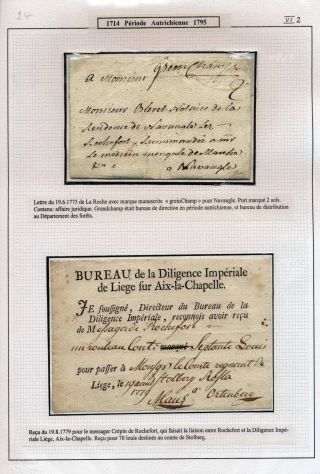 24
1714 Période Autrichienne 1795
VI 2
greinChamps
A Monsieur
2
Monsieur Bleret Notaire de la
Residence de Navaugle Lez
Rochefort, recommandée a mr
le medecin
de Marche
a Navaugle
Lettre du 19.6.1775 de La Roche avec marque manuscrite « greinChamp » pour Navaugle. Port marqué 2 sols.
Contenu: affaire juridique. Grandchamp était bureau de direction en période autrichienne, et bureau de distribution
au Département des forêts.
BUREAU de la Diligence Impériale
de Liege sur Aix-la-Chapelle.
JE soussigné, Directeur du Bureau de la
Diligence Impériale, reconnois avoir reçu
de Messager de Rochefort
un rouleau Cont: marqué Septante Louis
pour passer à Monsgr le Comte regnant de
Liege, le 19 aout Stolberg Rosla
1779 a Ortenberg
Reçu du 19.8.1779 pour le messager Crépin de Rochefort, qui faisait la liaison entre Rochefort et la Diligence Impé-
riale Liège, Aix-la-Chapelle. Reçu pour 70 louis destinés au comte de Stolberg.